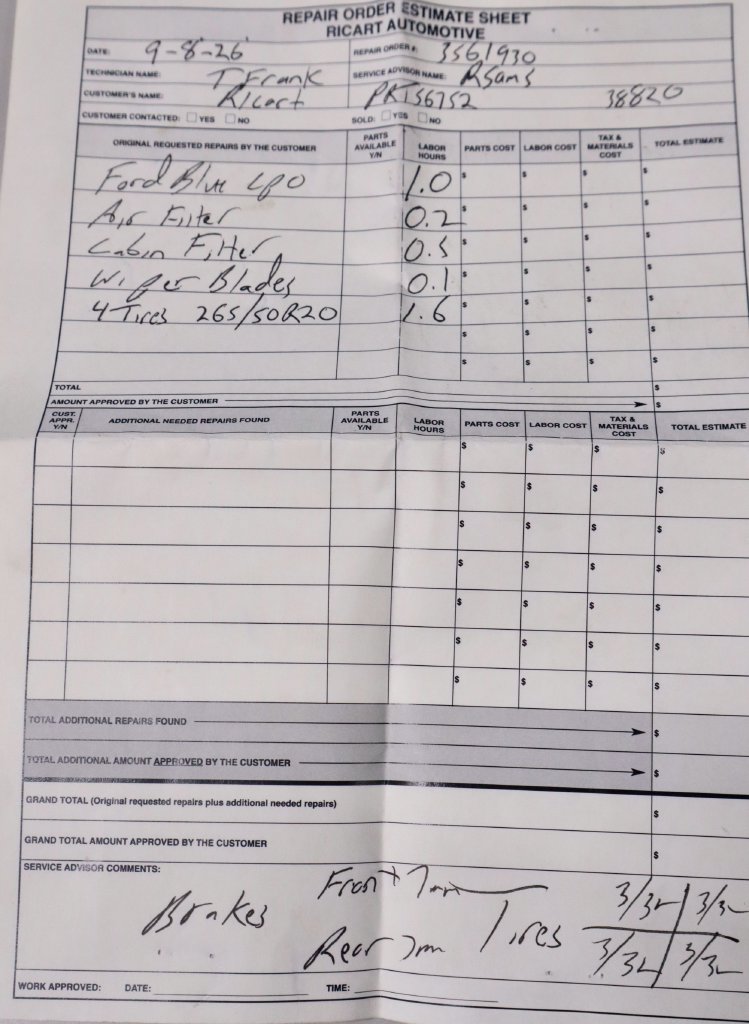 REPAIR ORDER ESTIMATE SHEET
RICART AUTOMOTIVE
DATE: 9-8-26 REPAIR ORDER #: 3561930
TECHNICIAN NAME: T Frank SERVICE ADVISOR NAME: RSams
CUSTOMER'S NAME: Ricart PRTS6752 38820
CUSTOMER CONTACTED: YES NO SOLD: YES NO
ORIGINAL REQUESTED REPAIRS BY THE CUSTOMER PARTS AVAILABLE Y/N LABOR HOURS PARTS COST LABOR COST TAX & MATERIALS COST TOTAL ESTIMATE
Ford Blue LPO 1.0 $ $ $ $
Air Filter 0.2 $ $ $ $
Cabin Filter 0.5 $ $ $ $
Wiper Blades 0.1 $ $ $ $
4 Tires 265/50R20 1.6 $ $ $ $
$ $ $ $
$ $ $ $
TOTAL $
AMOUNT APPROVED BY THE CUSTOMER $
CUST. APPR. Y/N ADDITIONAL NEEDED REPAIRS FOUND PARTS AVAILABLE Y/N LABOR HOURS PARTS COST LABOR COST TAX & MATERIALS COST TOTAL ESTIMATE
$ $ $ $
$ $ $ $
$ $ $ $
$ $ $ $
$ $ $ $
$ $ $ $
$ $ $ $
TOTAL ADDITIONAL REPAIRS FOUND $
TOTAL ADDITIONAL AMOUNT APPROVED BY THE CUSTOMER $
GRAND TOTAL (Original requested repairs plus additional needed repairs) $
GRAND TOTAL AMOUNT APPROVED BY THE CUSTOMER $
SERVICE ADVISOR COMMENTS:
Front 7mm 3/32 3/32
Brakes Tires
Rear 7mm 3/32 3/32
WORK APPROVED: DATE: TIME: